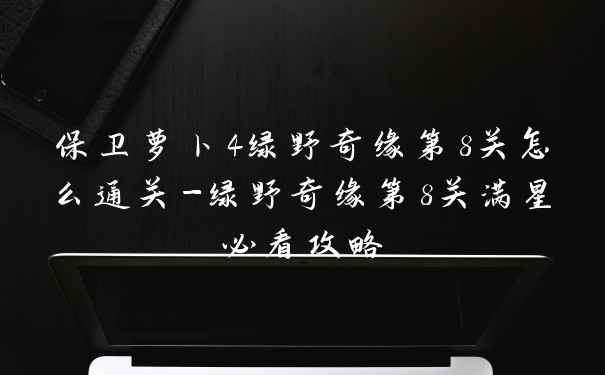 保卫萝卜4绿野奇缘第8关怎
么通关-绿野奇缘第8关满星
必看攻略